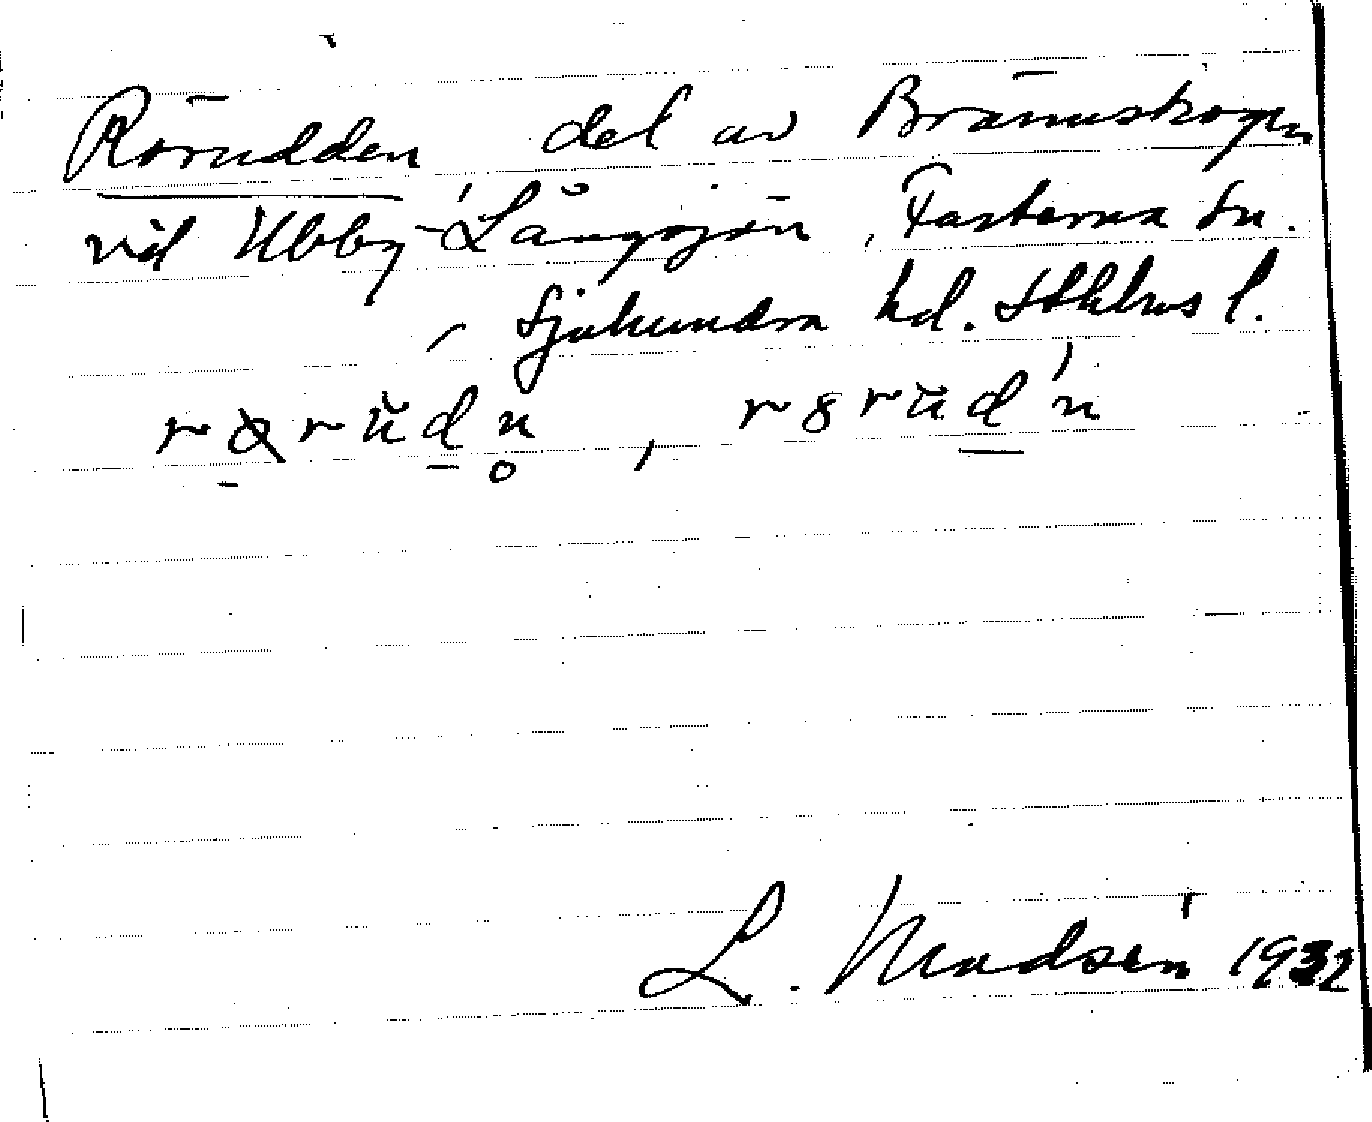 Rörudden del av Brännskogen
vid Ubby-Långsjön, Fasterna sn.
, Sjuhundra hd. Sthlms l.
L. 1932